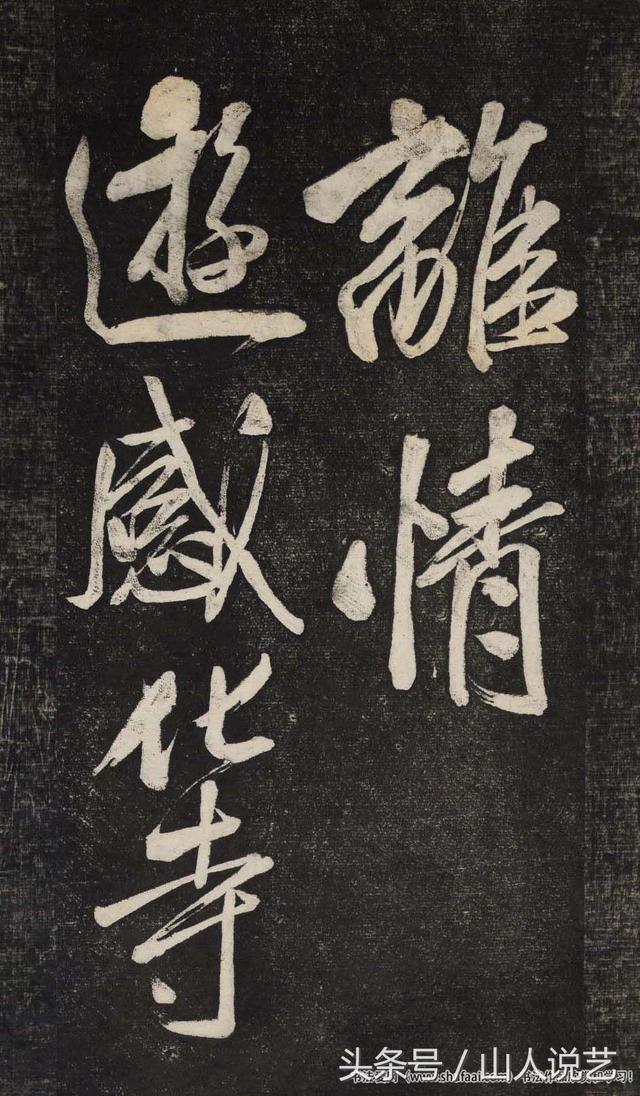 離情
遊感化寺
头条号 / 山人说艺